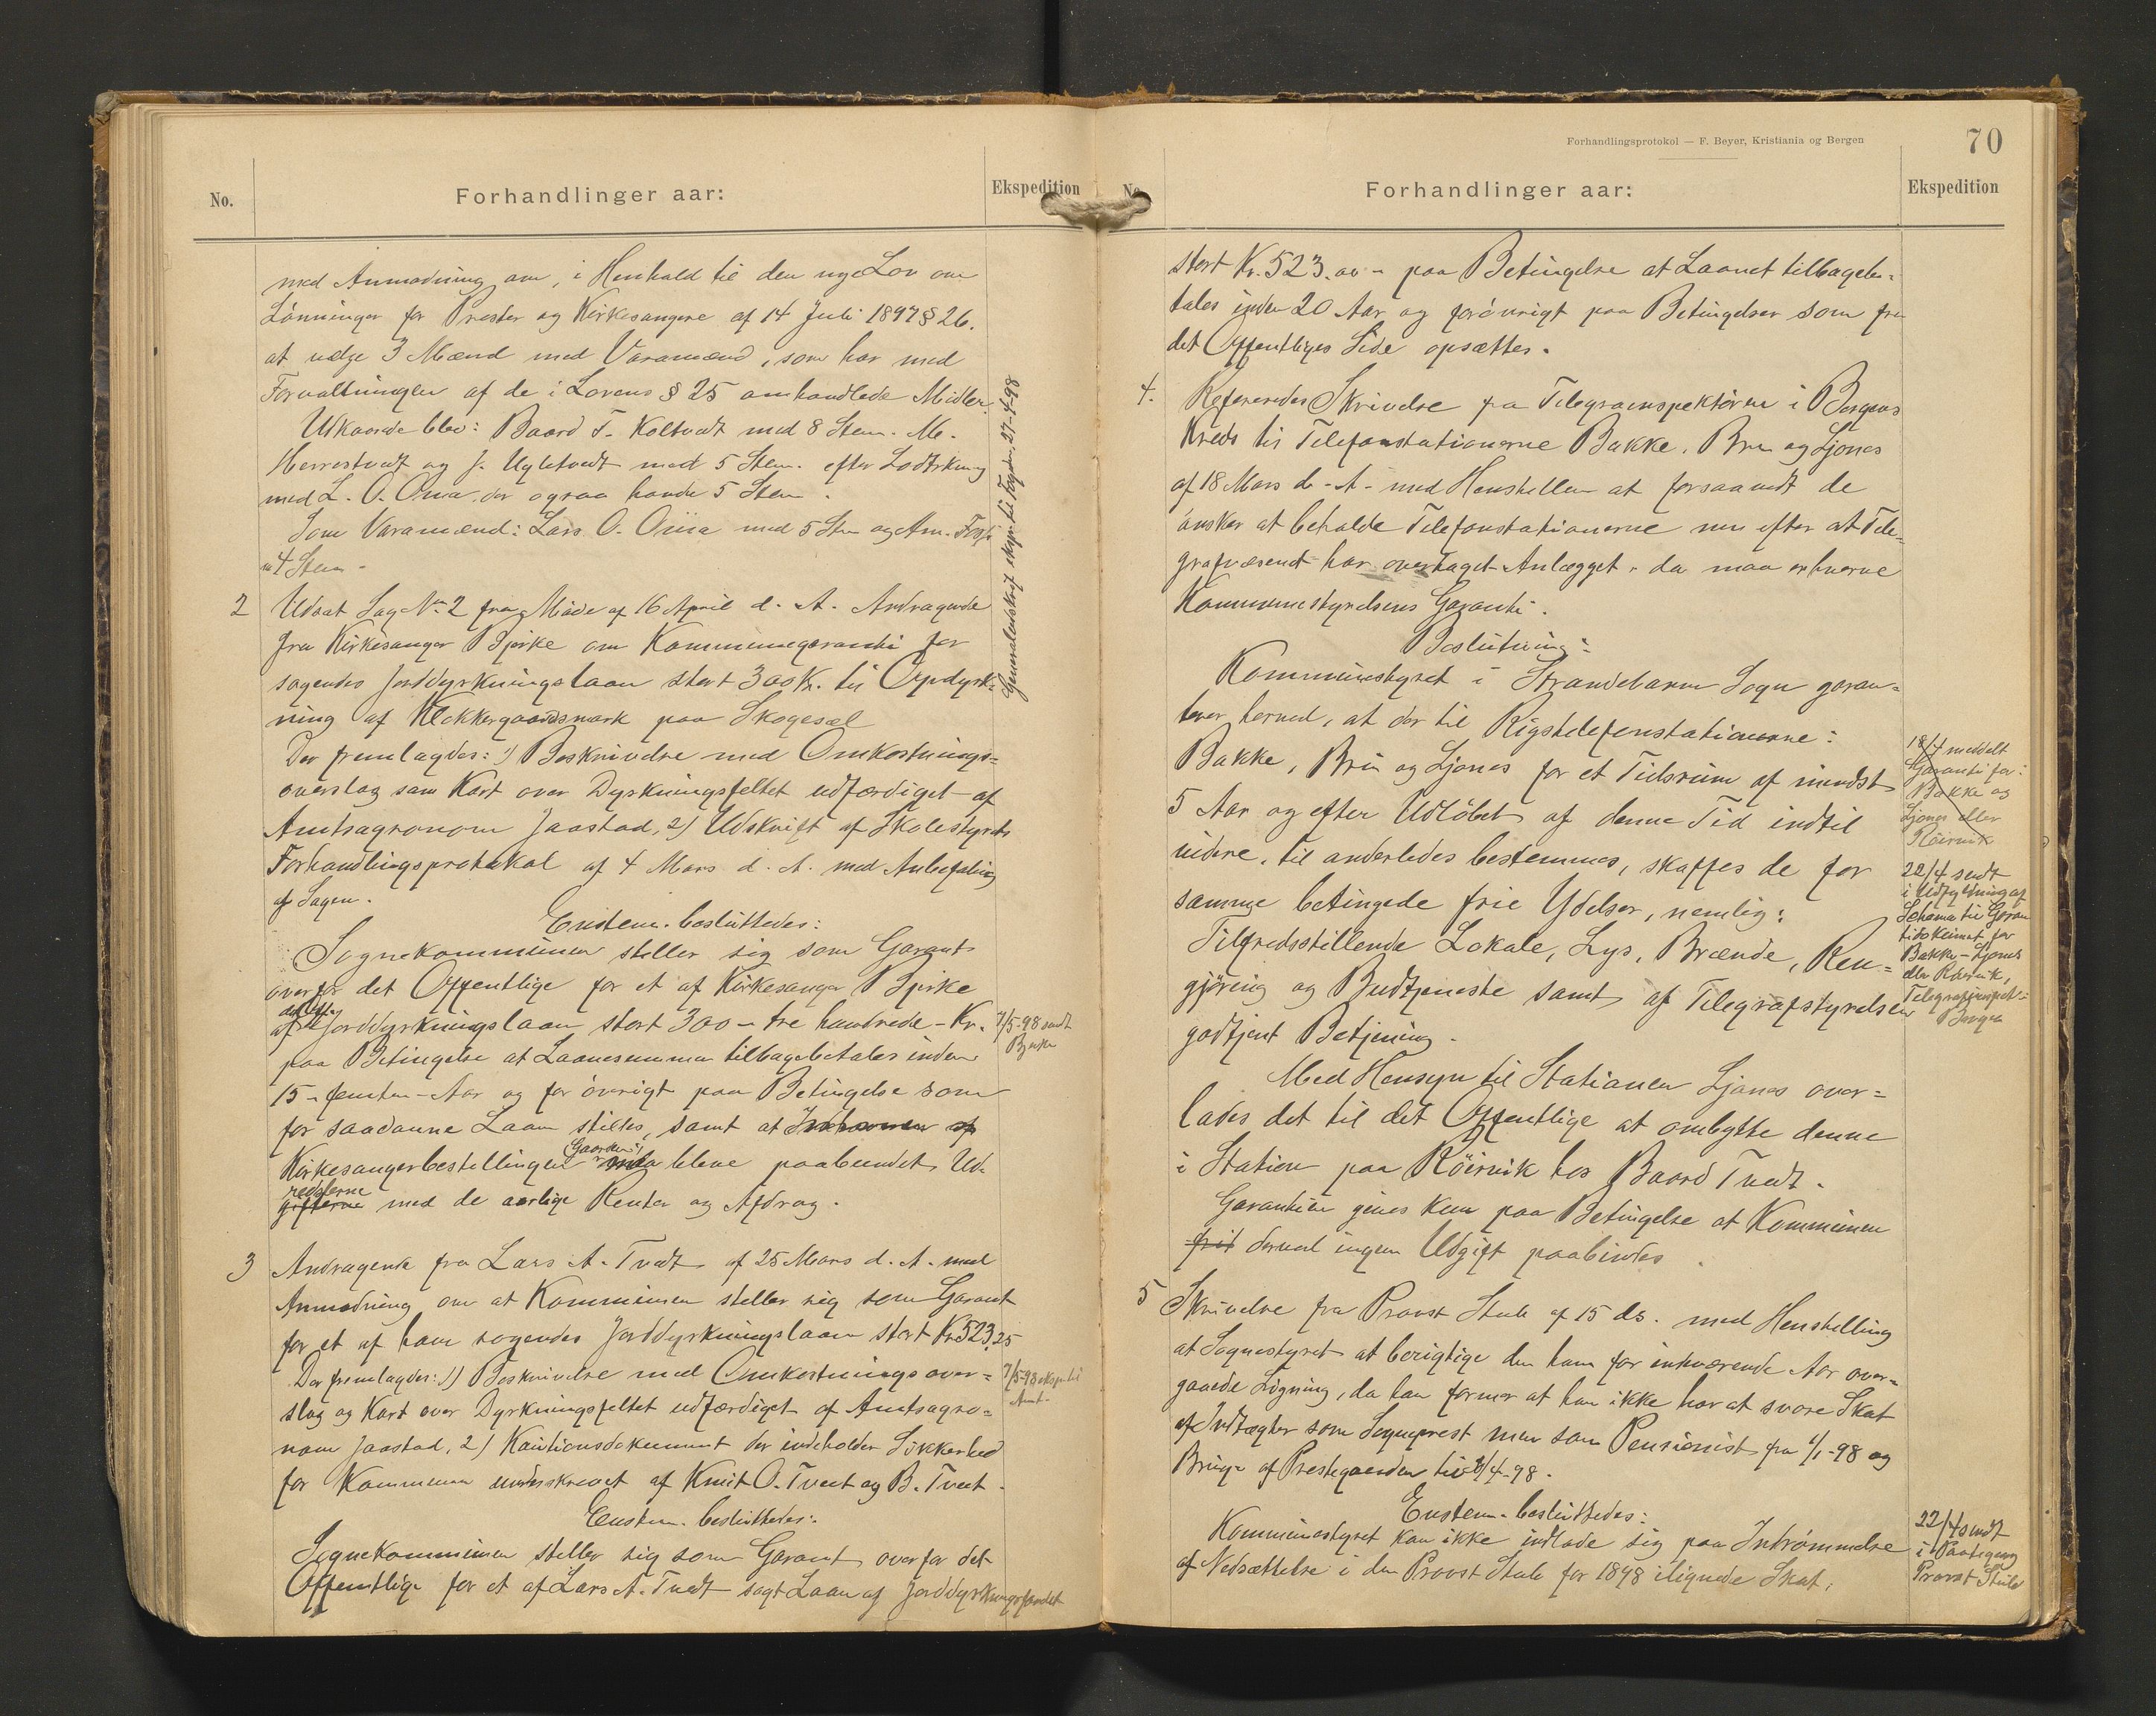 No.
Forhandlinger aar:
Ekspedition
med Anmodning om, i Henhold til den nye Lov om
Lønninger for Prester og Kirkesangere af 14 Juli 1897 § 26.
at vælge 3 Mænd med Varamænd, som har med
Forvaltningen af de i Lovens § 25 omhandlede Midler.
Udkaarede blev: Baard T. Koltvedt med 8 Stem. M.
Herrestvedt og J. Ugletvedt med 5 Stem. efter Lodtrkning
med L. O. Oma der ogsaa havde 5 Stem.
Som Varamænd: Lars O. Oma med 5 Stm og Am. Fosse
m 4 Stem.
Generaludskrift eksp. til Fogden 27-4-98
2 Udsat Sag No 2 fra Møde af 16 April d. A. Andragende
fra Kirkesanger Bjerke om Kommunegaranti for
søgendes Jorddyrkningslaan stort 300 Kr. til Opdyrk-
ning af Klokkergaardsmark paa Skogesæl
Der fremlagdes: 1) Beskrivelse med Omkostnings=
overslag sam Kart over Dyrkningsfeltet udfærdiget af
Amtsagronom Jaastad, 2) Udskrift af Skolestyrets
Forhandlingsprotokol af 4 Mars d. A. med Anbefaling
af Sagen.
Enstem. besluttedes:
Sognekommunen stiller sig som Garant
overfor det Offentlige for et af Kirkesanger Bjerke
af Jorddyrkningslaan stort 300 – tre hundrede – Kr.
7/5-98 sendt
Bjerke
paa Betingelse at Laanesummen tilbagebetales inden
15 – femten – Aar og for øvrigt paa Betingelse som
for saadanne Laan stilles, samt at Indehaveren af
Kirkesangerbestillingen Gaarden bleve paabundet Ud-
redslerne
gifterne med de aarlige Renter og Afdrag.
3 Andragende fra Lars A. Tvedt af 25 Mars d. A. med
Anmodning om at Kommunen stiller sig som Garant
for et af ham søgendes Jorddyrkningslaan stort Kr 523,25
Der fremlagdes: 1) Beskrivelse med Omkostningsover=
7/5-98 eksp. til
Amt.
slag og Kart over Dyrkningsfeltet udfærdiget af Amtsagro=
nom Jaastad, 2) Kautionsdokument der indeholder Sikkerhed
for Kommunen underskrevet af Knut O. Tvedt og B. Tvedt.
Enstem. besluttedes:
Sognekommunen stiller sig som Garant overfor det
Offentlige for et af Lars A. Tvedt søgt Laan af Jorddyrkningsfondet
Forhandlingsprotokol — F. Beyer, Kristiania og Bergen
70
No.
Forhandlinger aar:
Ekspedition
stort Kr. 523.00 – paa Betingelse at Laanet tilbagebe-
tales inden 20 Aar og forøvrigt paa Betingelser som fra
det Offentliges Side opsættes.
4. Refereredes Skrivelse fra Telegrafinspektøren i Bergens
Kreds til Telefonstationerne Bakke, Bru og Ljones
af 18 Mars d. A. med Henstillen at forsaavidt de
ønsker at beholde Telefonstationerne nu efter at Tele=
grafvæsenet har overtaget Anlægget, da maa erhverve
Kommunestyrelsens Garanti.
Beslutning:
Kommunestyret i Strandebarm Sogn garan=
terer herved, at der til Rigstelefonstationerne:
Bakke, Bru og Ljones for et Tidsrum af mindst
5 Aar og efter Udløbet af denne Tid indtil
videre, til anderledes bestemmes, skaffes de for
samme betingede frie Ydelser, nemlig:
Tilfredsstillende Lokale, Lys, Brænde, Ren=
gjøring og Budtjeneste samt af Telegrafstyrelsen
godtjent Betjening.
18/4 meddelt
Garanti for:
Bakke og
Ljones eller
Röirvik
22/4 sendt
i Udfyldning af
Schema til Garan
tidokument for
Bakke – Ljones
eller Röirvik,
Telegrafinspek=
Bergen
Med Hensyn til Stationen Ljones over=
lades det til det Offentlige at ombytte denne
i Station paa Röirvik hos Baard Tvedt.
Garantien gives kun paa Betingelse at Kommunen
frit derved ingen Udgift paabindes.
5 Skrivelse fra Provst Stub af 15 ds. med Henstilling
at Sognestyret at berigtige den ham for indeværende Aar over=
gaaede Ligning, da han formener at han ikke har at svare Skat
af Indtægter som Sogneprest men som Pensionist fra 1/1-98 og
Brug af Prestegaarden til /4-98.
Enstem. besluttedes:
Kommunestyret kan ikke indlade sig paa Indrømmelse
af Nedsættelse i den Provst Stub for 1898 ilignede Skat.
22/4 sendt
i Paategning
Provst Stub